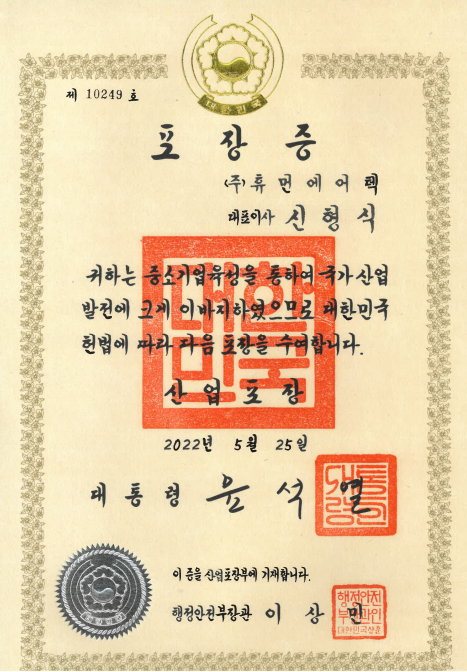 대한민국
제 10249 호
포장증
(주)휴먼에어텍
대표이사 신형식
귀하는 중소기업육성을 통하여 국가산업
발전에 크게 이바지하였으므로 대한민국
헌법에 따라 다음 포장을 수여합니다.
산업포장
2022년 5월 25일
대통령 윤석열
이 증을 산업포장부에 기재합니다.
행정안전부장관 이상민